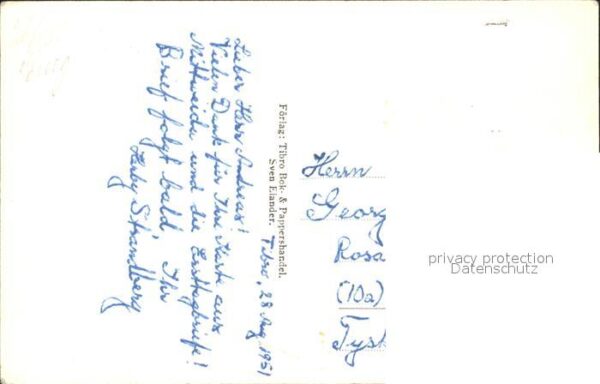 Tibro, 28 Aug 1951
Lieber Herr Andreas!
Vielen Dank für Ihre Karte aus
Mittweida und die Ersttagbriefe!
Brief folgt bald. Ihr
Strandberg
Förlag: Tibro Bok- & Pappershandel.
Sven Elander.
Herrn
Georg
Rosa
(10a)
Tysk
privacy protection
Datenschutz